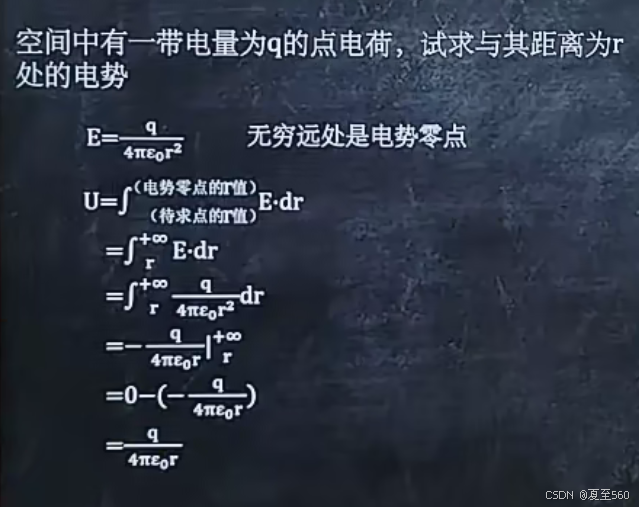 空间中有一带电量为q的点电荷，试求与其距离为r
处的电势
E=q/4πε₀r² 无穷远处是电势零点
U=∫(电势零点的r值)(待求点的r值)E·dr
=∫+∞ r E·dr
=∫+∞ r q/4πε₀r² dr
=-q/4πε₀r|+∞ r
=0-(-q/4πε₀r)
=q/4πε₀r
CSDN @夏至560